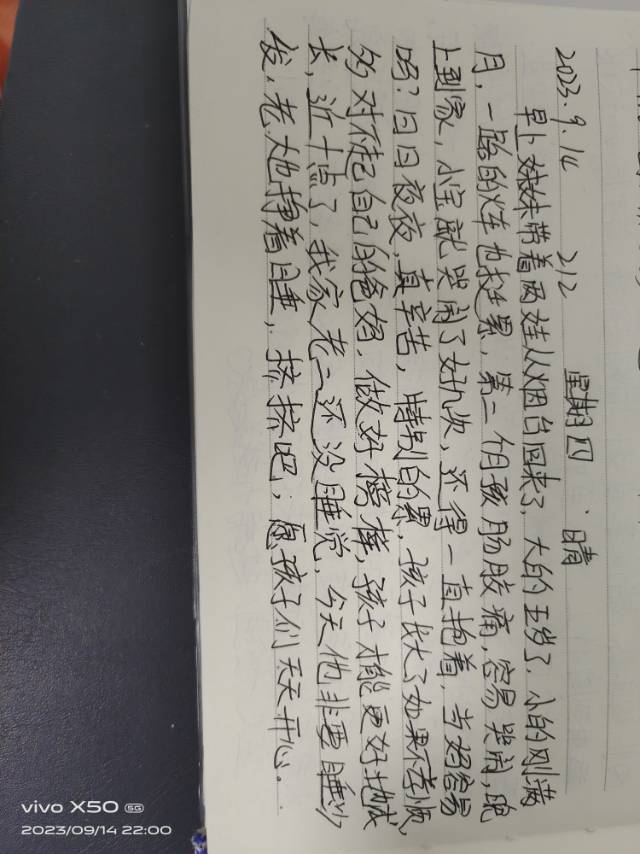 2023.9.14 212 星期四、晴
早上妹妹带着两娃从烟台回来了，大的五岁了，小的刚满
月，一路的火车也挺累，第二个孩肠胶痛，容易哭闹，晚
上到家，小宝就哭闹了好几次，还得一直抱着，当妈容易
吗？日日夜夜，真辛苦，特别的累，孩子长大了如果不孝顺，
多对不起自己的爸妈，做好榜样，孩子才能更好地成
长，近十点了，我家老二还没睡觉，今天他非要睡沙
发，老大地挣着睡，挤挤吧；愿孩子们天天开心。
vivo X50 5G
2023/09/14 22:00